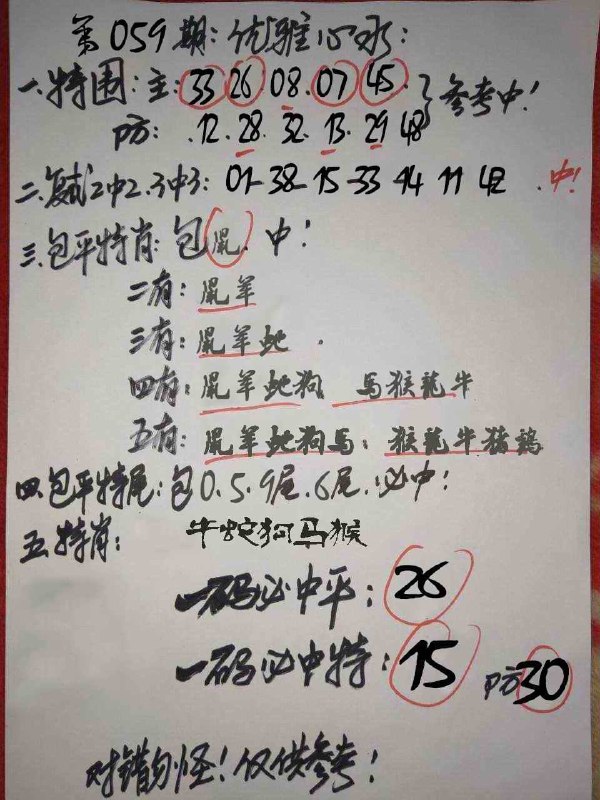 第059期:优雅心水:
一.特围:主:33.26.08.07.45.
防:.12.28.32.13.29.48 }参考中!
二.复试2中2.3中3:01-38-15-33 44 11 42 .中!
三.包平特肖:包鼠.中!
二有:鼠羊
三有:鼠羊蛇.
四有:鼠羊蛇狗 馬猴龍牛
五有:鼠羊蛇狗馬:猴龍牛猪鷄
四.包平特尾:包0.5.9尾.6尾.必中!
五.特肖:牛蛇狗马猴
一码必中平:26
一码必中特:15 防30
对错勿怪!仅供参考!